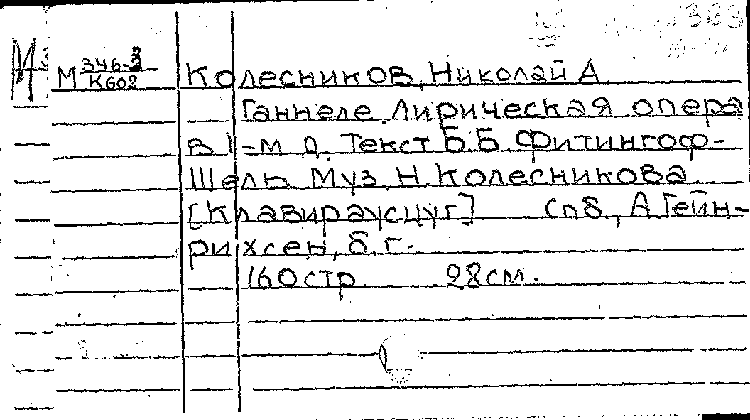 М 346-3
К602
Колесников, Николай А.
Ганнеле. Лирическая опера
в 1-м д. Текст Б.Б. Фитингоф-
Шель. Муз. Н. Колесникова.
[Клавираусцуг] Спб., А. Гейн-
рихсен, б.г.
160 стр. 28 см.